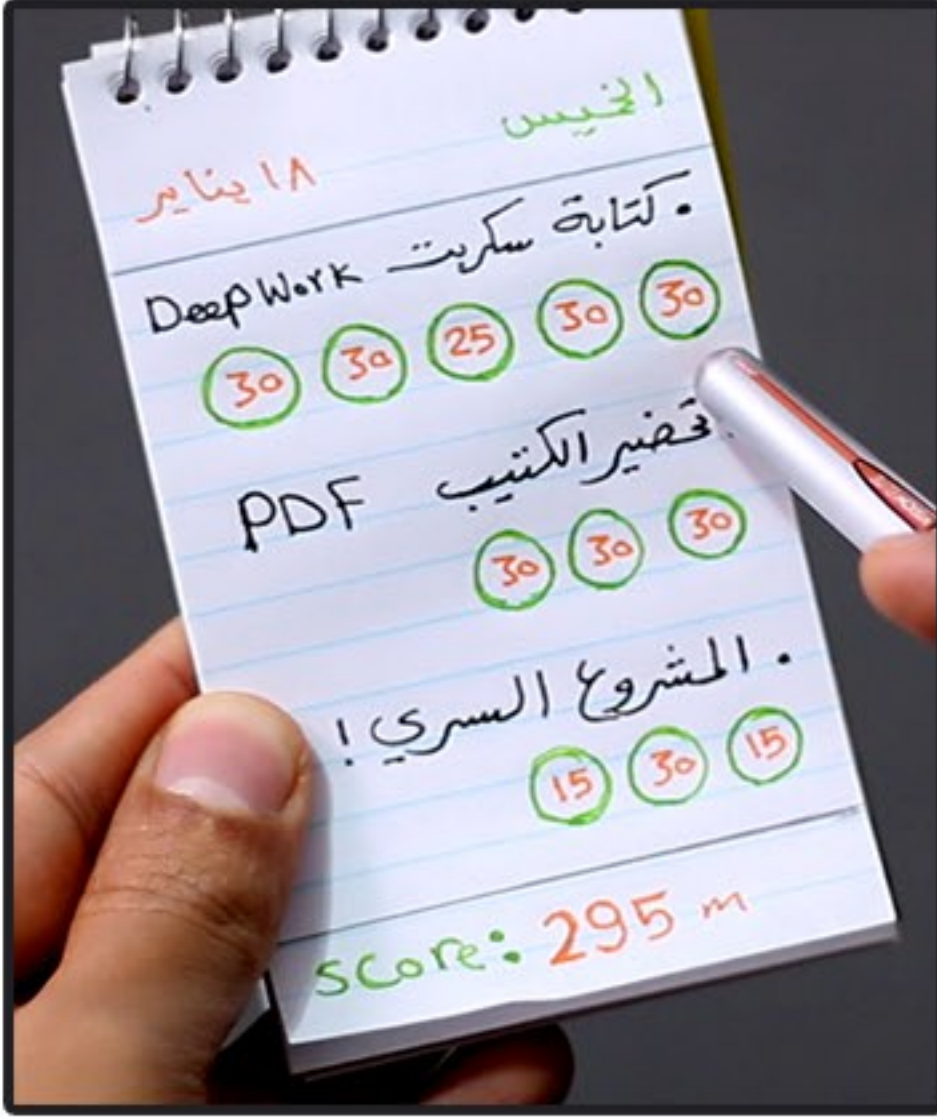 الخميس
١٨ يناير
• كتابة سكربت DeepWork
30 30 25 30 30
تحضير الكتيب PDF
30 30 30
• المشروع السري !
15 30 15
score: 295 m